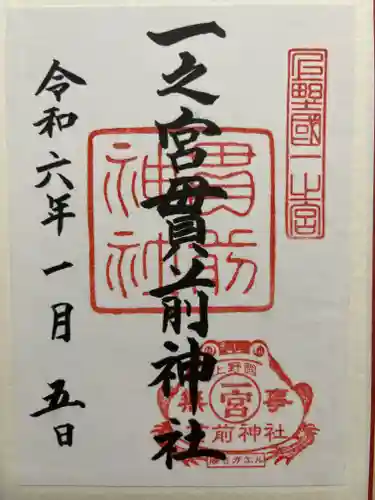 上野國一之宮
一之宮貫前神社
貫前
神社
上野國
一宮
無事
貫前神社
令和六年一月五日